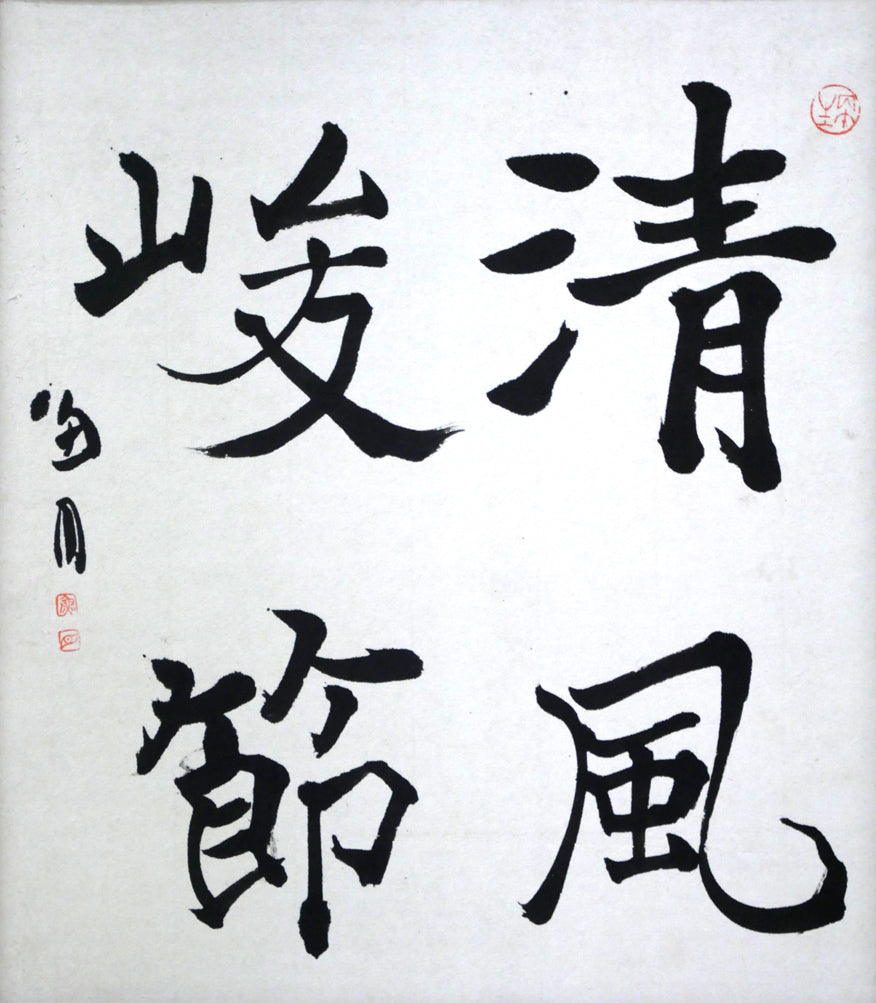 清風
峻節